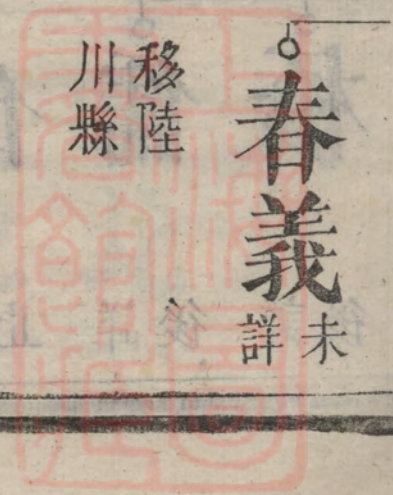 春義
未詳
移陸
川縣